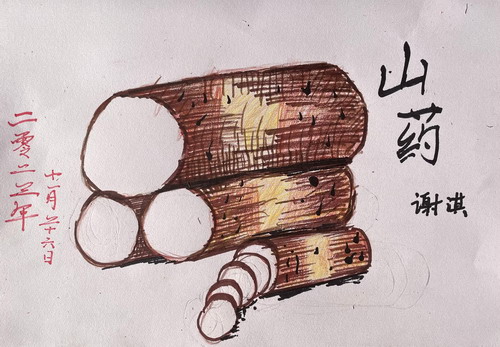 山药
谢淇
二零二三年
十一月二十六日